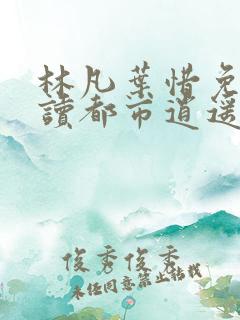 林凡葉惜免
讀都市逍遥
俊秀俊秀
未经同意禁止转载